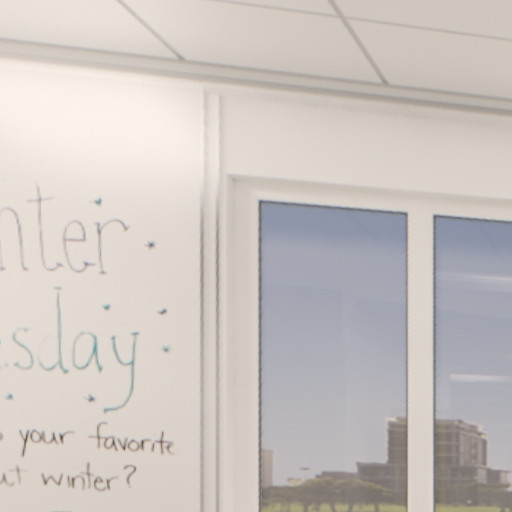 nter
sday
your favorite
ut winter?